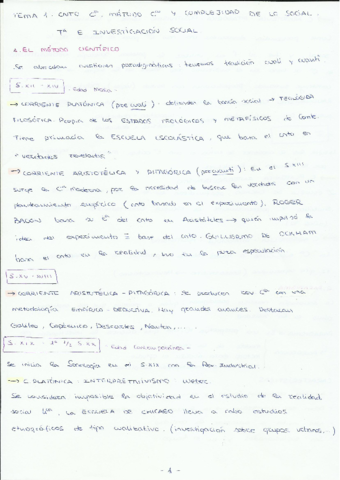 TEMA 1 - CNTO Cº, MÉTODO Cº Y COMPLEJIDAD DE LO SOCIAL:
Tª E INVESTIGACIÓN SOCIAL
1. EL MÉTODO CIENTÍFICO
Se abordan cuestiones paradigmáticas: tenemos tradición cuali y cuanti
S. XII - XIV
Edad Media -
→ CORRIENTE PLATÓNICA (pre cuali): defiende la teoría social → TEOLOGÍA
FILOSÓFICA. Propia de los ESTADOS TEOLÓGICOS y METAFÍSICOS de Comte
Tiene primacía la ESCUELA ESCOLÁSTICA, que basa el cnto en
"verdades reveladas"
→ CORRIENTE ARISTOTÉLICA Y PITAGÓRICA (pre cuanti): En el S XIII
surge la Cª moderna, por la necesidad de buscar la verdad con un
planteamiento empírico (cnto basado en el experimento). ROGER
BACON basa el cnto en Aristóteles → quien inspiró la
idea del experimento = base del cnto. GUILLERMO DE OCKHAM
basa el cnto en la realidad, no en la pura especulación
S. XV - XVIII
→ CORRIENTE ARISTOTÉLICA - PITAGÓRICA: Se producen con una
metodología EMPÍRICO - DEDUCTIVA muy grandes avances
Galileo, Copérnico, Descartes, Newton, ...
S. XIX - 1ª 1/2 S. XX
Edad Contemporánea -
Se inicia la Sociología en el S XIX con la Rev. Industrial
→ C PLATÓNICA: ANTIPOSITIVISMO
Se considera imposible la objetividad en el estudio de la realidad
social. La ESCUELA DE CHICAGO lleva a cabo estudios
etnográficos de tipo cualitativo. (investigación sobre grupos urbanos...)
- 1 -